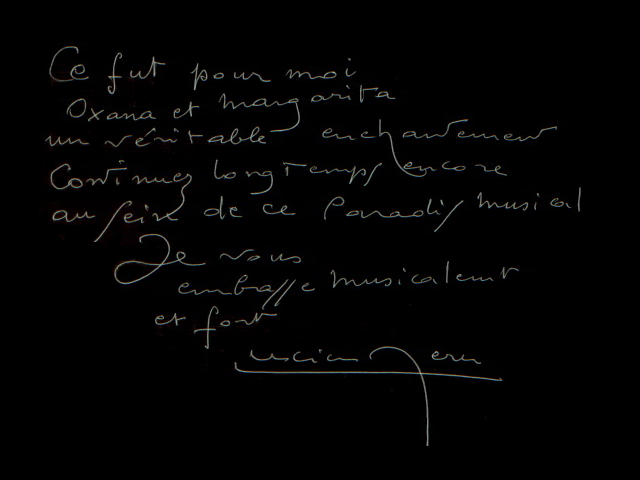 Ce fut pour moi
Oxana et margarita
un véritable enchantement
Continuez longtemps encore
au sein de ce Paradis musical
Je vous
embrasse musicalemt
et fort